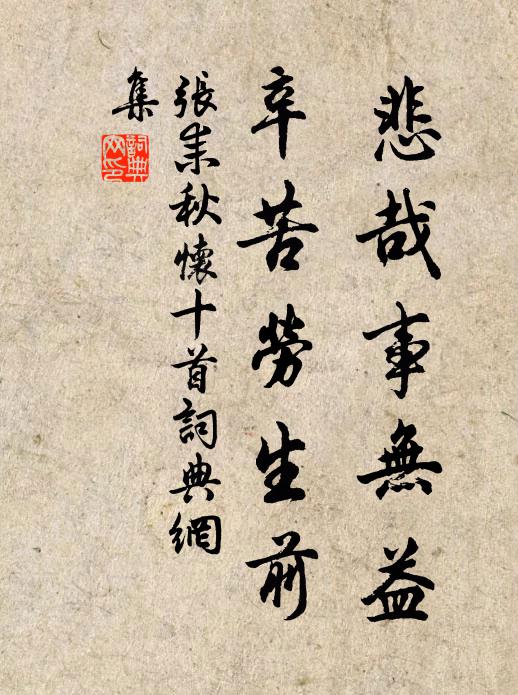 悲哉事無益
辛苦勞生前
張耒秋懷十首詞典網
集
詞典
網印